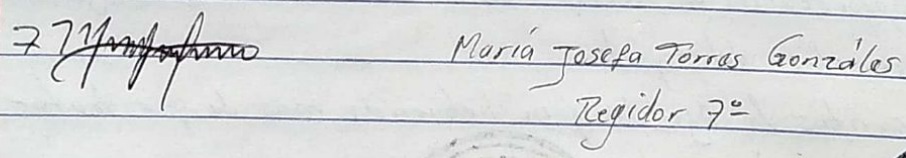 7 María Josefa Torres Gonzáles
Regidor 7º